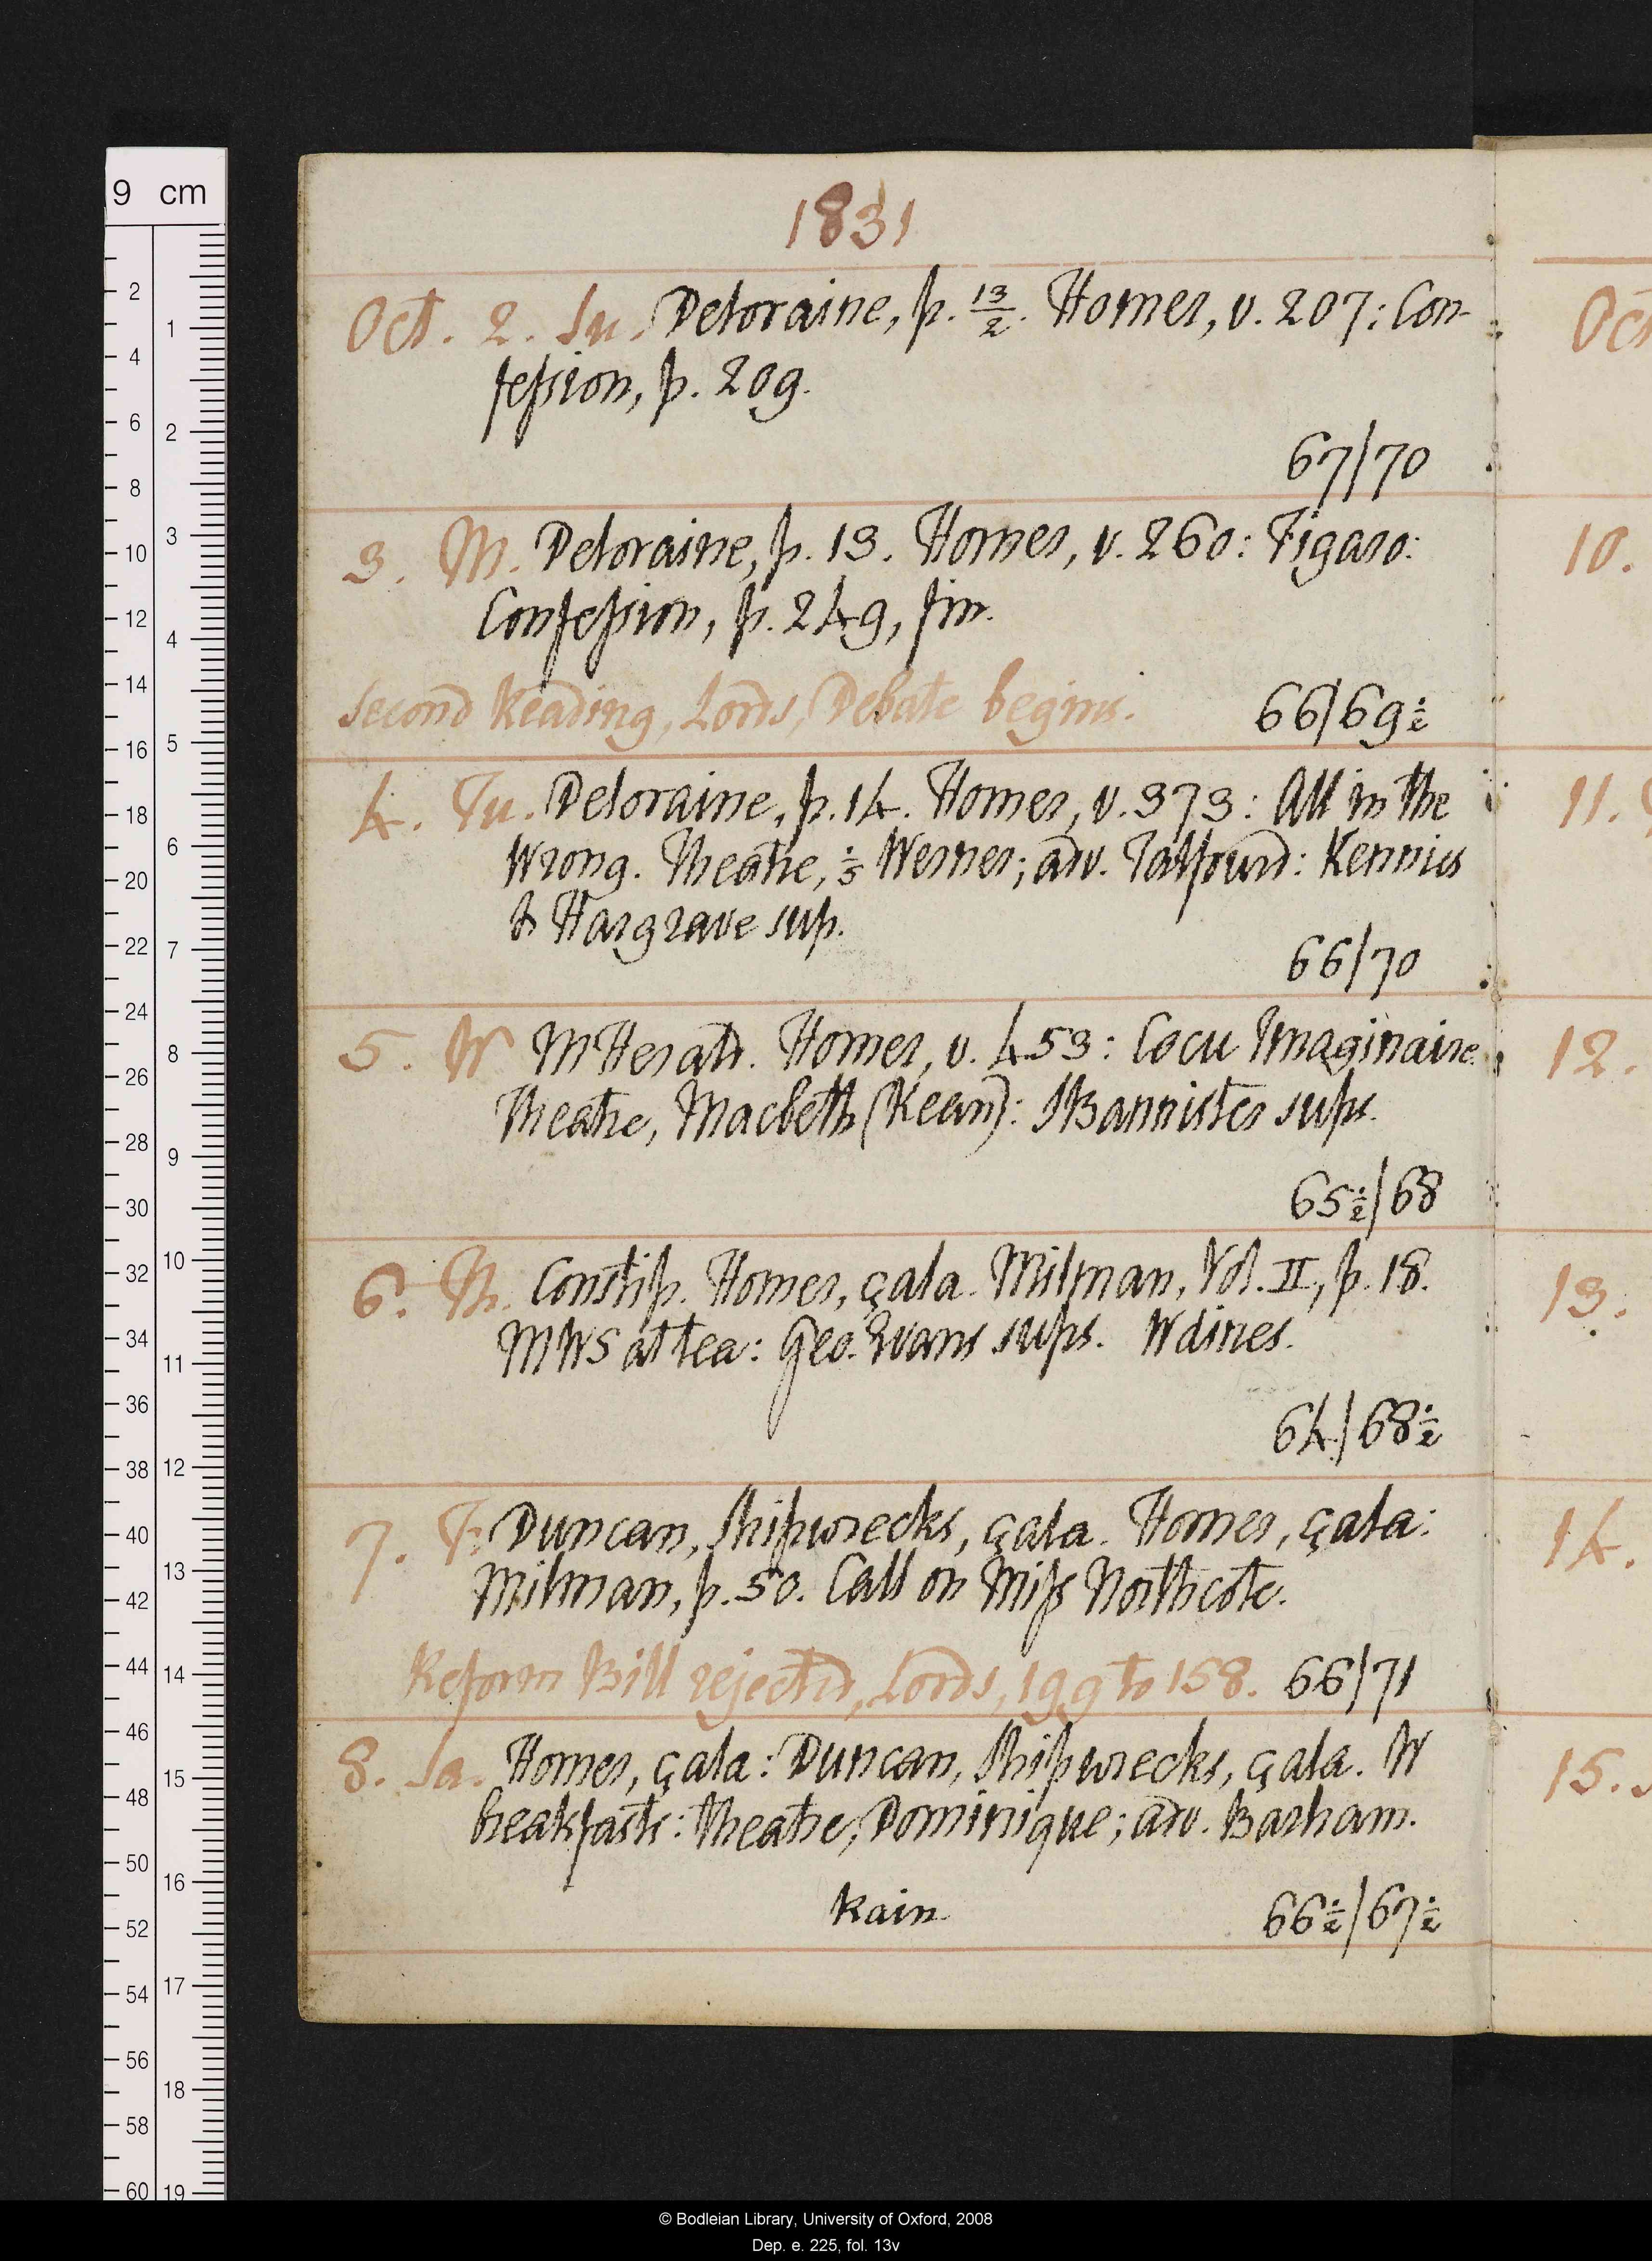 1831
Oct. 2. Su. Deloraine, p. 13/2. Homer, v. 207: Con-
fession, p. 209.
67/70
3. M. Deloraine, p. 13. Homer, v. 260: Figaro:
Confession, p. 249, fin.
Second Reading, Lords, Debate begins.
66/69½
4. Tu. Deloraine, p. 14. Homer, v. 373: All in the
Wrong. Theatre, ⅓ Werner; adv. Talfourd: Kennies
& Hargrave sup.
66/70
5. W M Herald. Homer, v. 453: Cocu Imaginaire.
Theatre, Macbeth (Kean): JBannister sups.
65½/68
6. Th. Constip. Homer, çala. Milman, Vol. II, p. 18.
MWS at tea: Geo. Evans sups. W dines.
64/68½
7. F. Duncan, Shipwrecks, çala. Homer, çala:
Milman, p. 50. Call on Miss Northcote.
Reform Bill rejected, Lords, 199 to 158.
66/71
8. Sa. Homer, çala: Duncan, Shipwrecks, çala. W
breakfasts: theatre, Dominique; adv. Barham.
Rain
66½/67½
Oct
10.
11.
12.
13.
14.
15.
9 cm
2
4
6
8
10
12
14
16
18
20
22
24
26
28
30
32
34
36
38
40
42
44
46
48
50
52
54
56
58
60
1
2
3
4
5
6
7
8
9
10
11
12
13
14
15
16
17
18
19
© Bodleian Library, University of Oxford, 2008
Dep. e. 225, fol. 13v